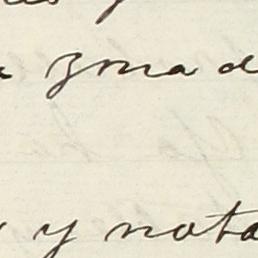 zona d
y nota